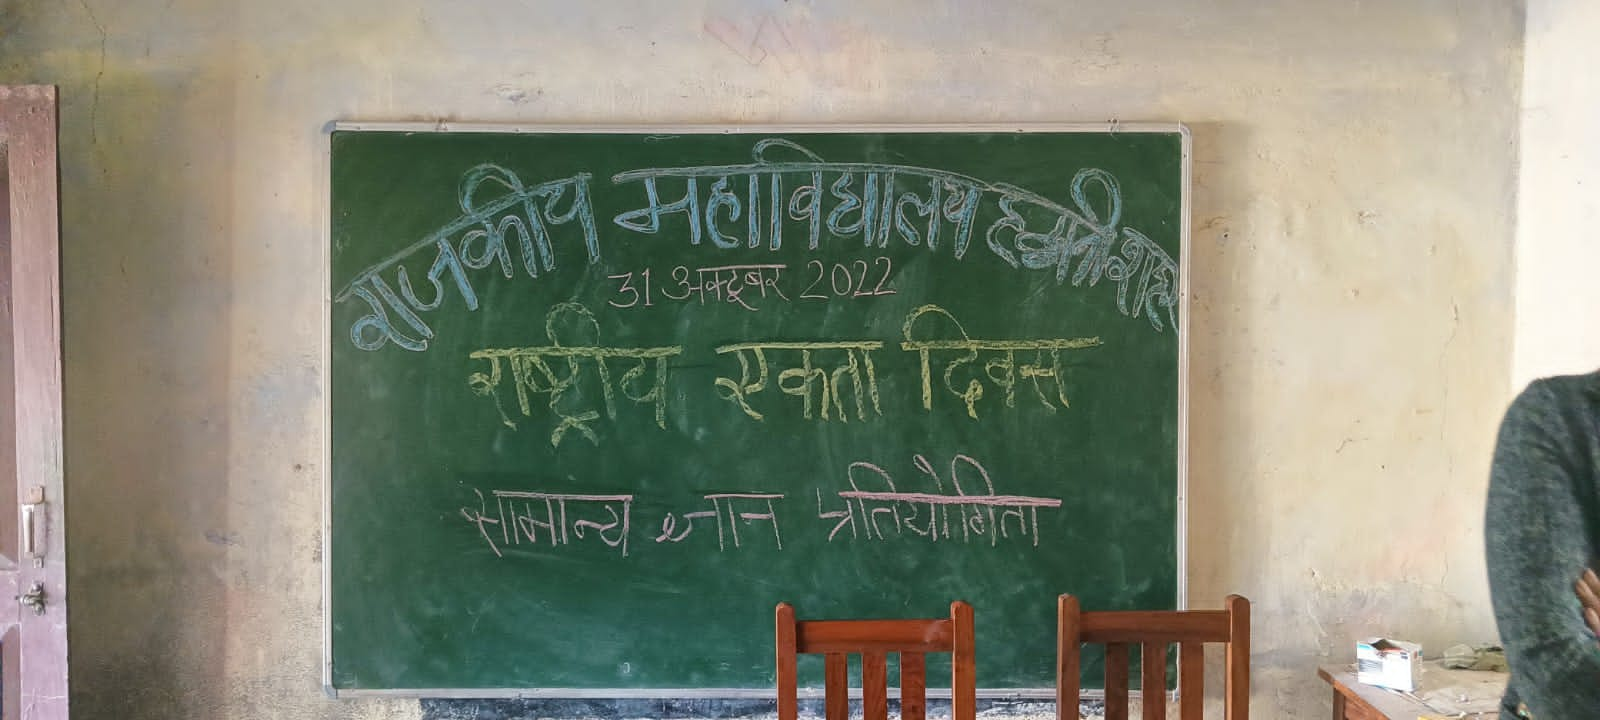 राजकीय महाविद्यालय
31 अक्टूबर 2022
राष्ट्रीय एकता दिवस
सामान्य ज्ञान प्रतियोगिता